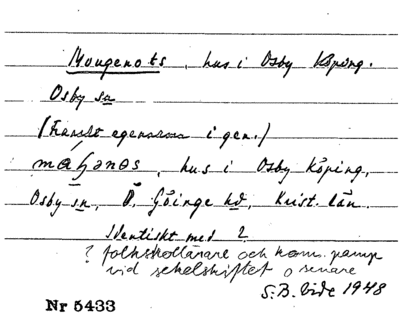 Mougenots, hus i Osby köping.
Osby sn
(Framst egenamn i gen.)
hus i Osby köping,
Osby sn, Ö. Göinge hd, Krist. län.
Identiskt med ?
? folkskollärare och kom. pamp
vid sekelskiftet o senare
S.B. Vide 1948
Nr 5433